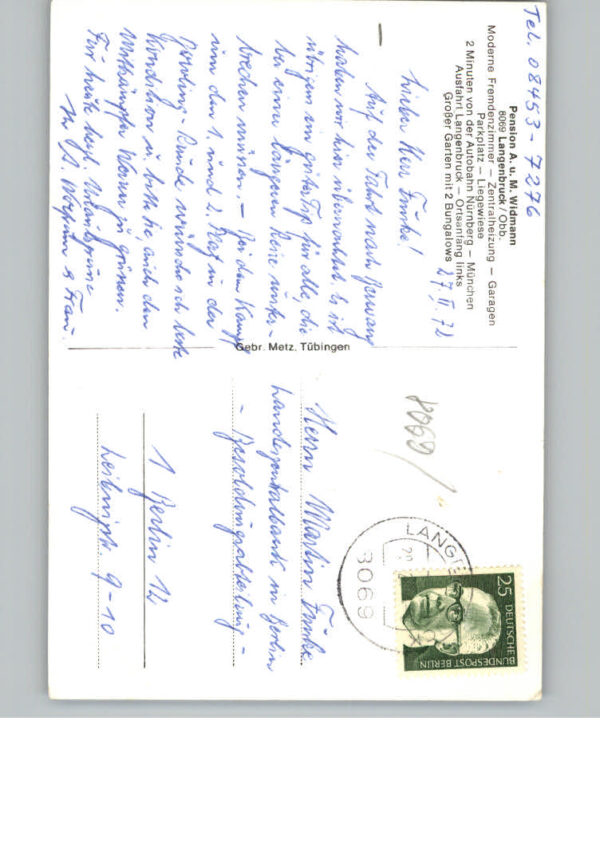 Tel. 08453-7276
Pension A. u. M. Widmann
8069 Langenbruck / Obb.
Moderne Fremdenzimmer – Zentralheizung – Garagen
Parkplatz – Liegewiese
2 Minuten von der Autobahn Nürnberg – München
Ausfahrt Langenbruck – Ortsanfang links
Großer Garten mit 2 Bungalows
27. II. 72
Lieber Herr Funke!
Auf der Fahrt nach
haben wir hier übernachtet. Es ist
übrigens ein guter Tip für alle, die
bei einer längeren Reise unter-
brechen müssen. – Bei dem Kampf
um den 1. und 2. Platz in der
Bowling-Runde wünsche ich beste
Kondition u. bitte Sie, auch den
Mitkämpfer zu grüßen.
Für heute herzl. Urlaubsgrüße
Ihr u. Frau.
Gebr. Metz, Tübingen
8069/
LANGE
8069
25
DEUTSCHE
BUNDESPOST BERLIN
Herrn Martin Funke
Landeszentralbank in Berlin
- Besoldungsabteilung -
1 Berlin 12
Leibnizstr. 9-10